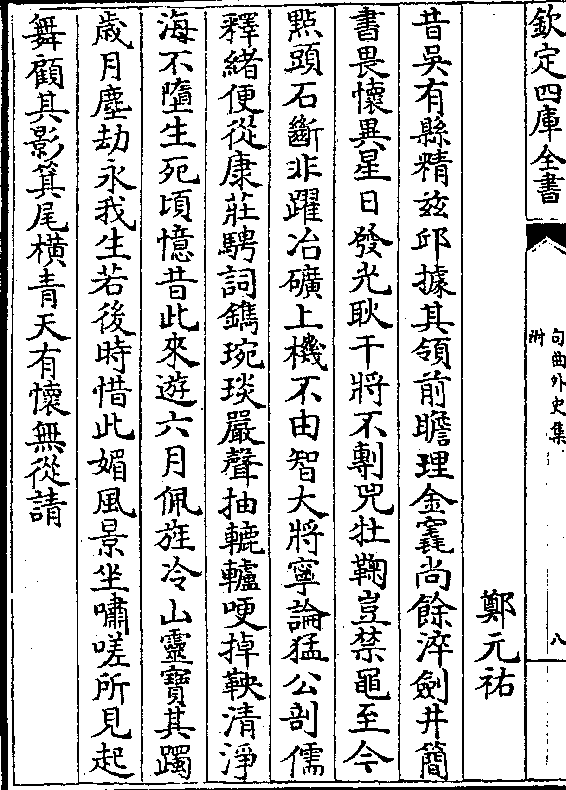 欽定四庫全書
句曲外史集
附
八
鄭元祐
昔吳有縣精兹邱據其領前瞻理金寔尚餘淬劍井簡
書畏懷異星日發光耿干將不剸兕壮鞠豈禁黽至今
點頭石斷非躍冶礦上機不由智大將寧論猛公剖儒
釋緒便從康莊騁詞鐫琬琰嚴聲抽轆轤哽掉鞅清淨
海不墮生死頃憶昔此來遊六月佩旌冷山靈寶其躅
歲月塵劫永我生若後時惜此媚風景坐嘯嗟所見起
舞顧其影箕尾橫青天有懷無從請